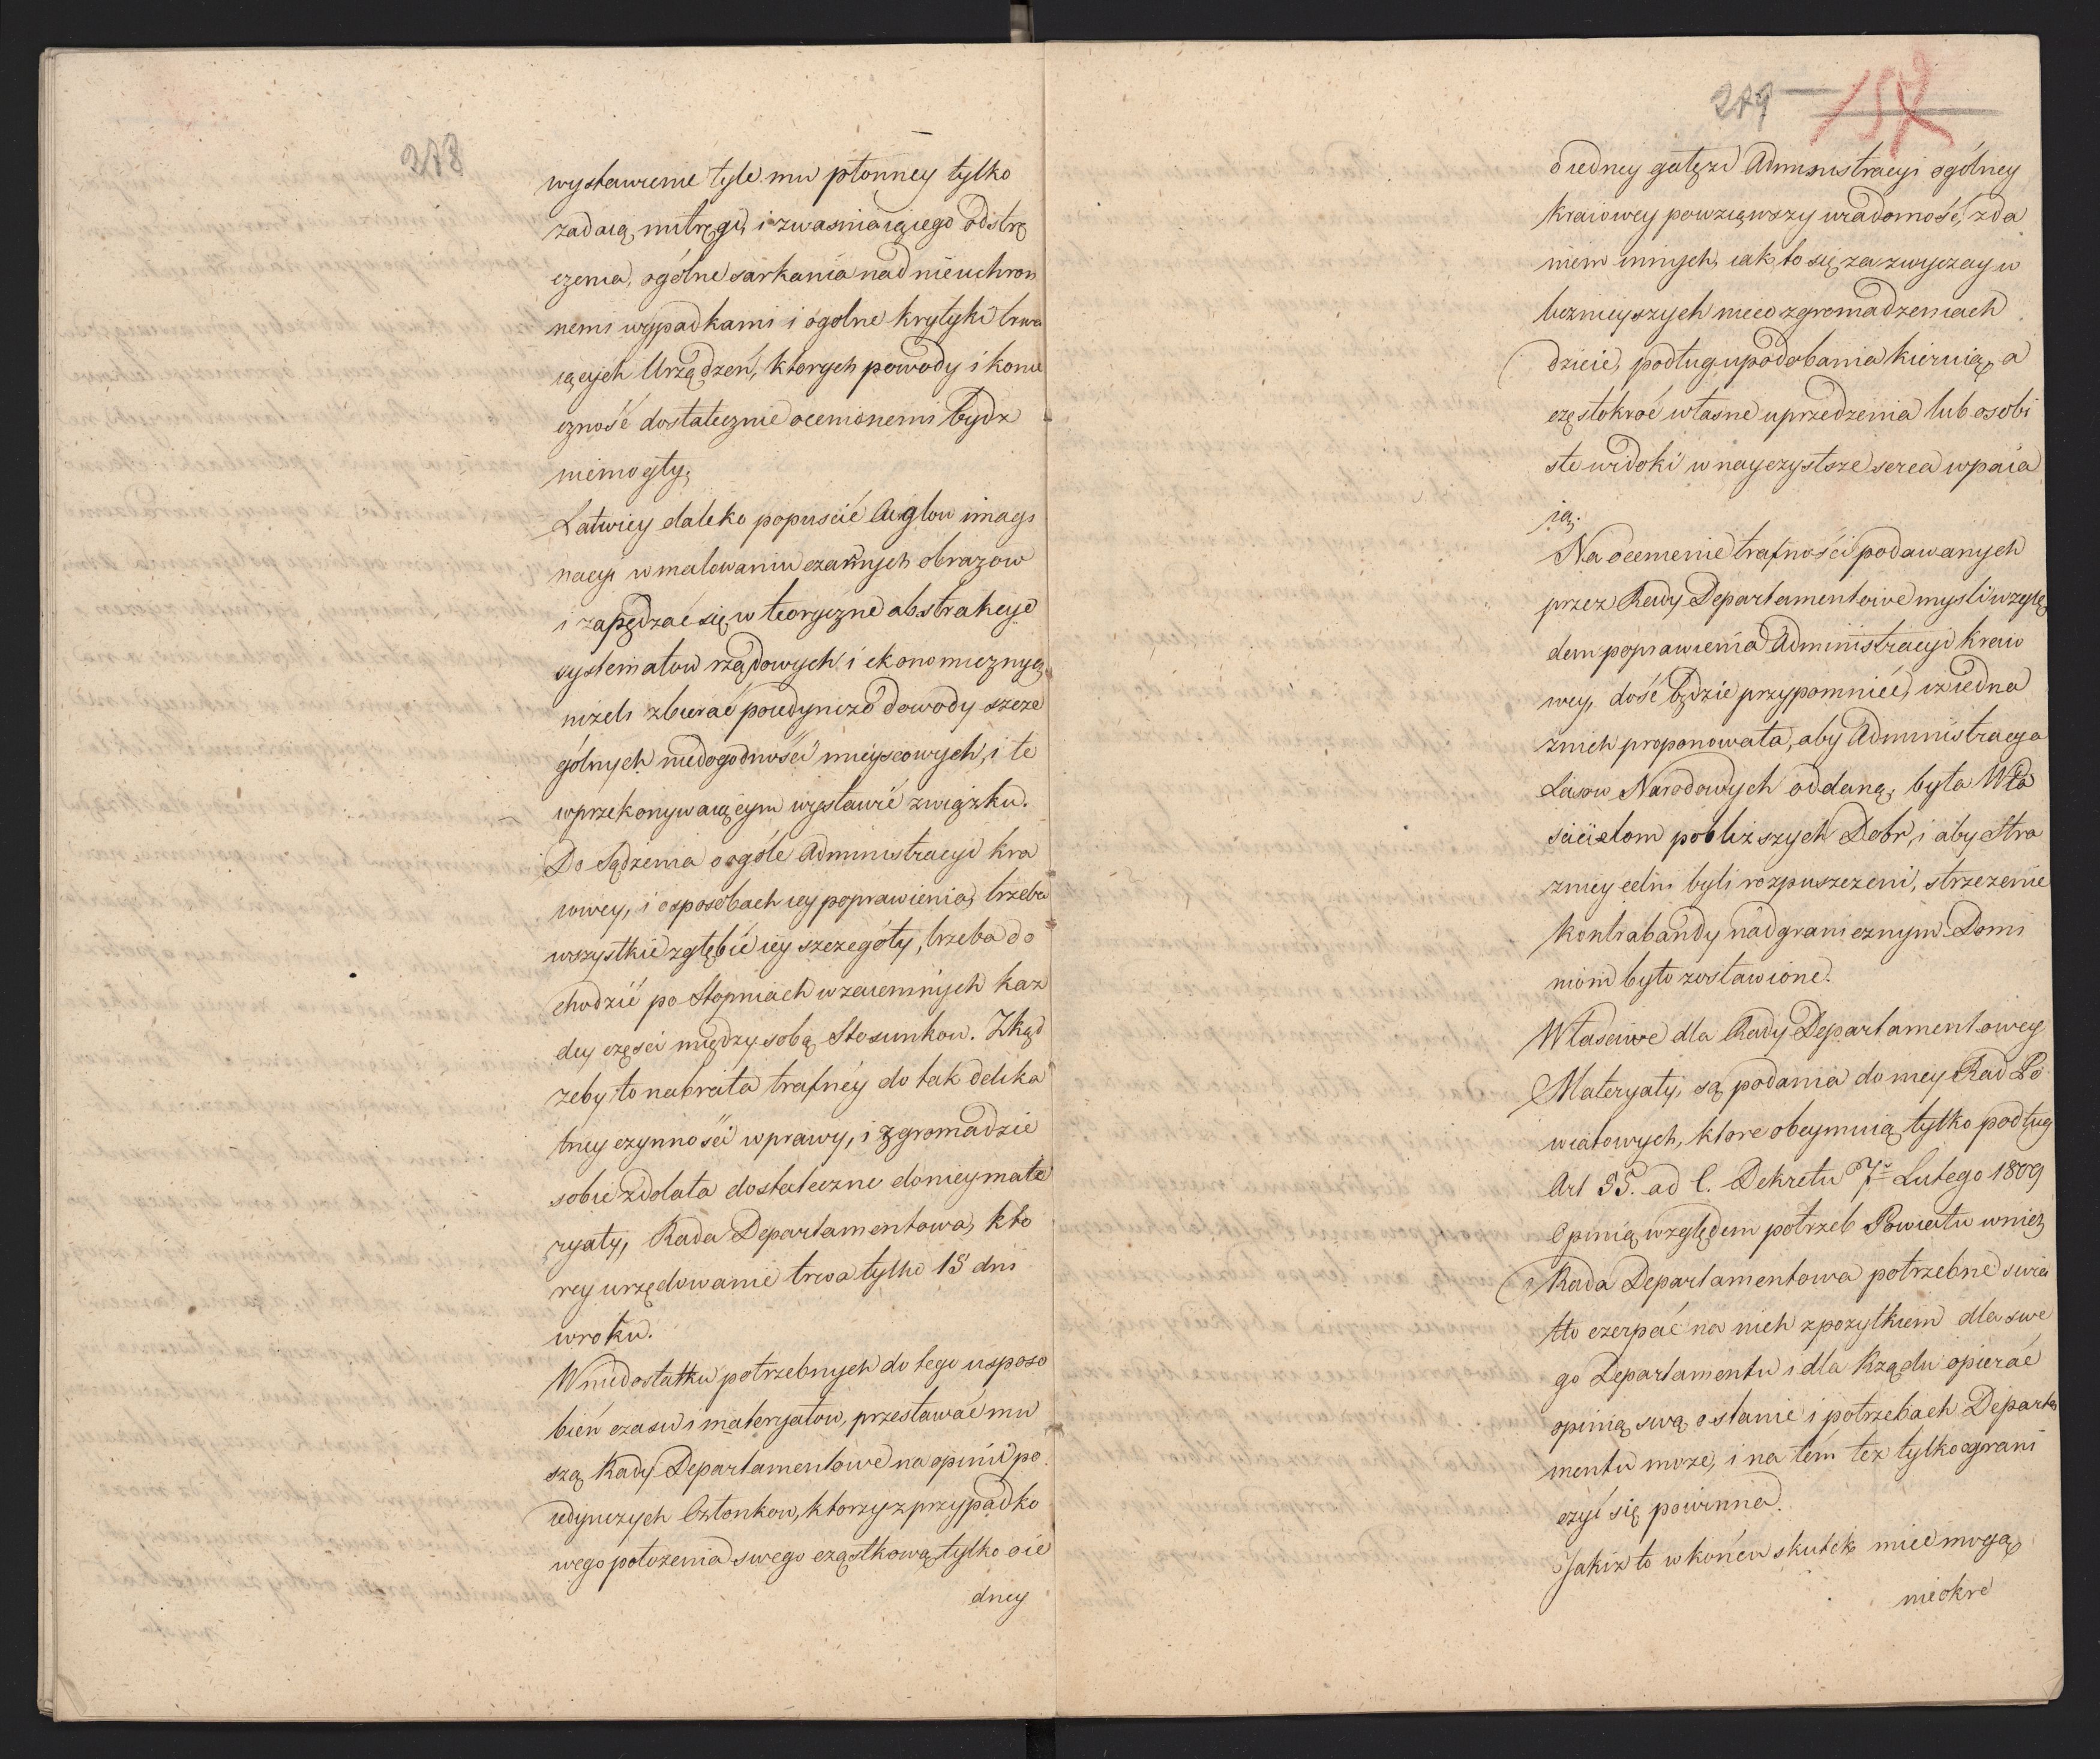 278
wystawienie tyle mu płonney tylko
zadaią mitręgi, i zwasniaiącego odstrę
czenia, ogólne sarkania nad nieuchron
nemi wypadkami i ogolne krytyki trwa
iących Urządzeń, ktorych powody i konie
czność dostatecznie ocenionemi bydz
niemogły,
Łatwiey daleko popuscić Cuglow imagi
nacyi w malowaniu czarnych obrazow
i zapędzać się w teoryczne abstrakcye
systematow rządowych i ekonomicznych,
niżeli zbierać poiedynczo dowody szcze
gólnych niedogodności mieyscowych, i te
w przekonywaiącym wystawić związku.
Do Sądzenia o ogóle Administracyi kra
iowey, i o sposobach iey poprawienia, trzeba
wszystkie zgłębić iey szczegóły, trzeba do
chodzić po Stopniach wzaiemnych kaz
dey części między sobą Stosunkow. Zkąd
zeby to nabrała trafnéy do tak delika
tney czynności wprawy, i zgromadzić
sobie zdolała dostateczne do niey mate
ryały, Rada Departamentowa, kto
rey urzędowanie trwa tylko 15 dni
w roku.
W niedostatku potrzebnych do tego usposo
bień czasu i materyałow, przestawać mu
szą Rady Departamentowe na opinii po
iedynczych Członkow, ktorzy z przypadko
wego położenia swego cząstkową tylko o ie
dney
279 157
o iedney gałęzi Administracyi ogólney
Kraiowey powziąwszy wiadomość, zda
niem innych, iak to się zazwyczay w
licznieyszych nieco zgromadzeniach
dzieie, podług upodobania kieruią, a
częstokroć własne uprzedzenia lub osobi
ste widoki w nayczystsze serca wpaia
ią.
Na ocenienie trafności podawanych
przez Rady Departamentowe mysli wzglę
dem poprawienia Administracyi kraio
wey, dość będzie przypomnieć, iz iedna
z nich proponowała, aby Administracya
Lasow Narodowych oddaną, była Wła
scicielom pobliższych Dobr, i aby Stra
znicy celni byli rozpuszczeni, strzeżenie
kontrabandy nadgranicznym Domi
niom było zostawione.
Własciwe dla Rady Departamentowey
Materyały, są podania do niey Rad Po
wiatowych, ktore obeymuią tylko podług
Art 55. ad l. Dekretu 7º Lutego 1809
Opinią względem potrzeb Powiatu w nich
Rada Departamentowa potrzebne swia
tło czerpać na nich z pożytkiem dla swe
go Departamentu i dla Rządu opierać
opinią swą o stanie i potrzebach Departa
mentu może, i na tém też tylko ograni
czyć się powinna.
Jakiż to w końcu skutek mieć mogą
nieokre